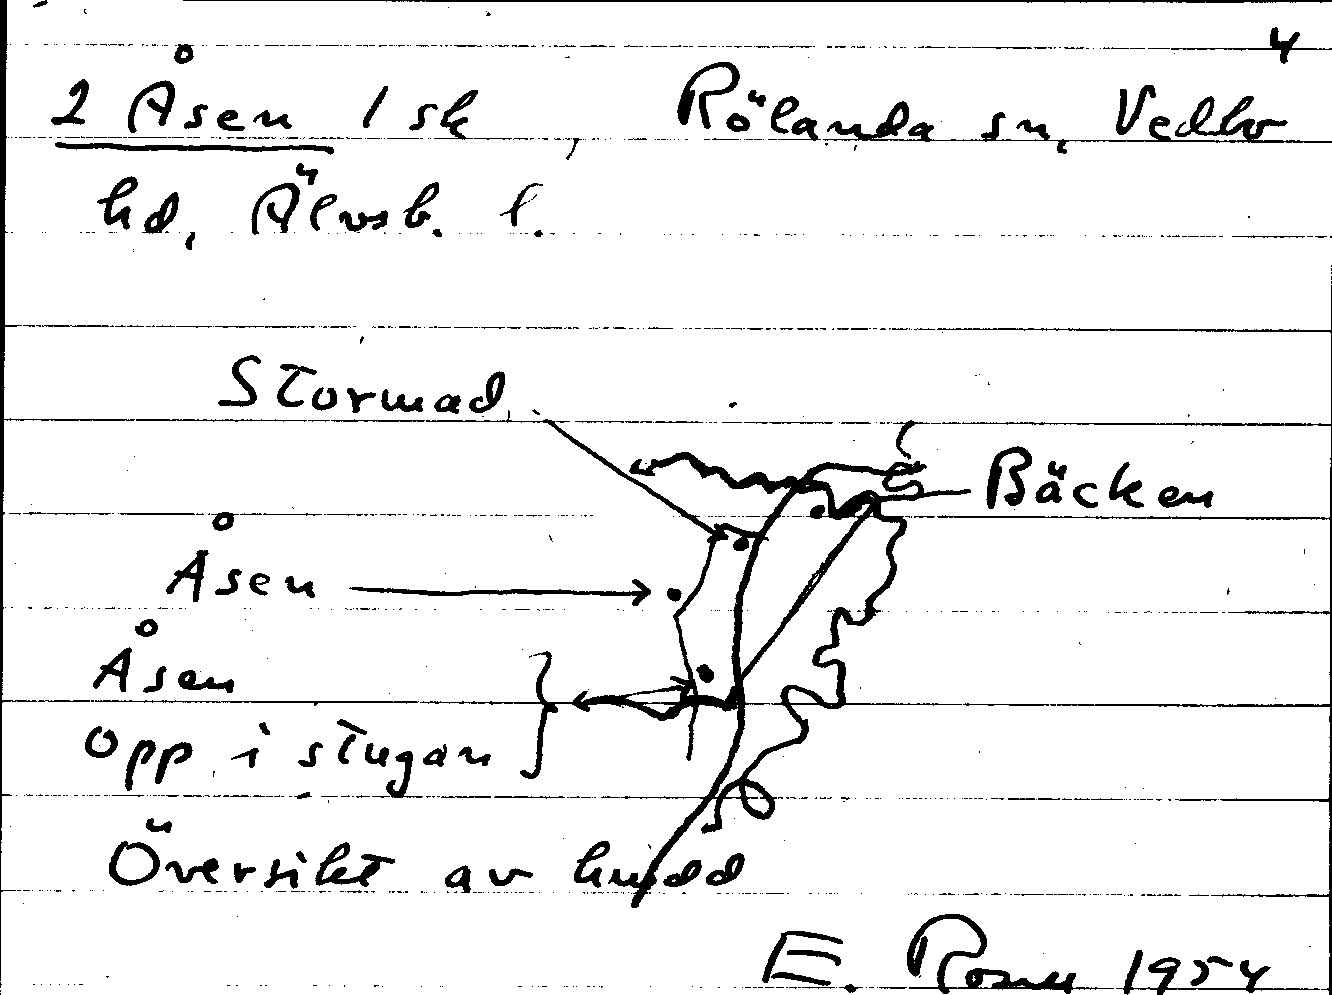 4
2 Åsen 1 sk, Rölanda sn, Vedbo
hd, Älvsb. l.
Stormad
Bäcken
Åsen
Åsen
opp i stugan
Översikt av
E. 1954